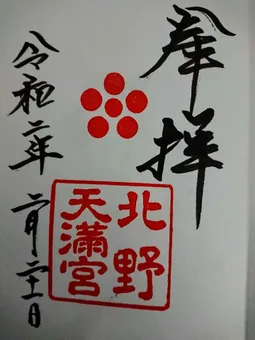 奉拝
北野
天満宮
令和二年二月二十一日